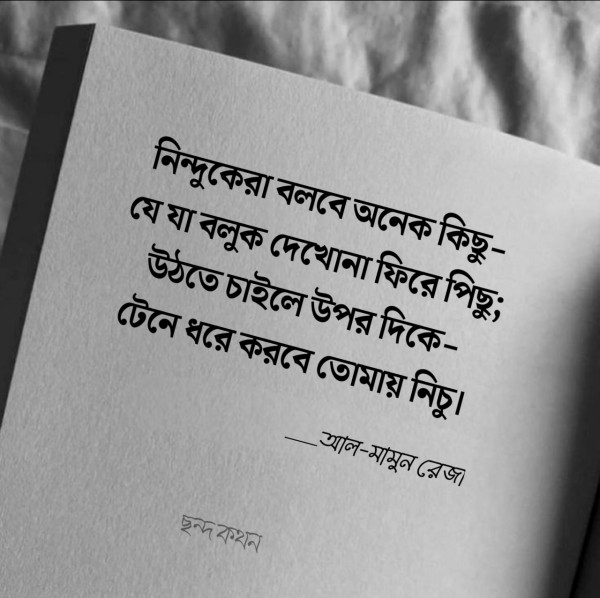 নিন্দুকেরা বলবে অনেক কিছু-
যে যা বলুক দেখোনা ফিরে পিছু;
উঠতে চাইলে উপর দিকে-
টেনে ধরে করবে তোমায় নিচু।
—আল-মামুন রেজা
ছন্দ কথন